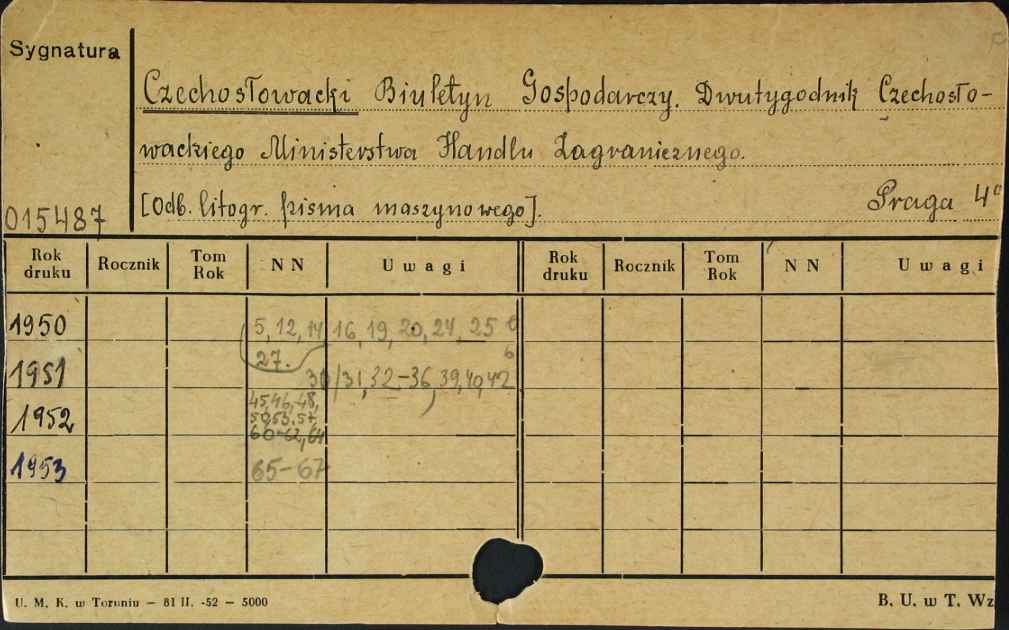 Sygnatura
Czechosłowacki Biuletyn Gospodarczy. Dwutygodnik Czechosło-
wackiego Ministerstwa Handlu Zagranicznego.
[Odb. litogr. pisma maszynowego].
Praga 4°
015487
Rok druku Rocznik Tom Rok NN Uwagi Rok druku Rocznik Tom Rok NN Uwagi
1950 5, 12, 14 16, 19, 20, 24, 25
27.
1951 30/31, 32-36, 39, 40, 42
45, 46, 48,
1952 50, 53, 57,
60-62, 64
1953 65-67
U. M. K. w Toruniu — 81 II. -52 — 5000
B. U. w T. Wz